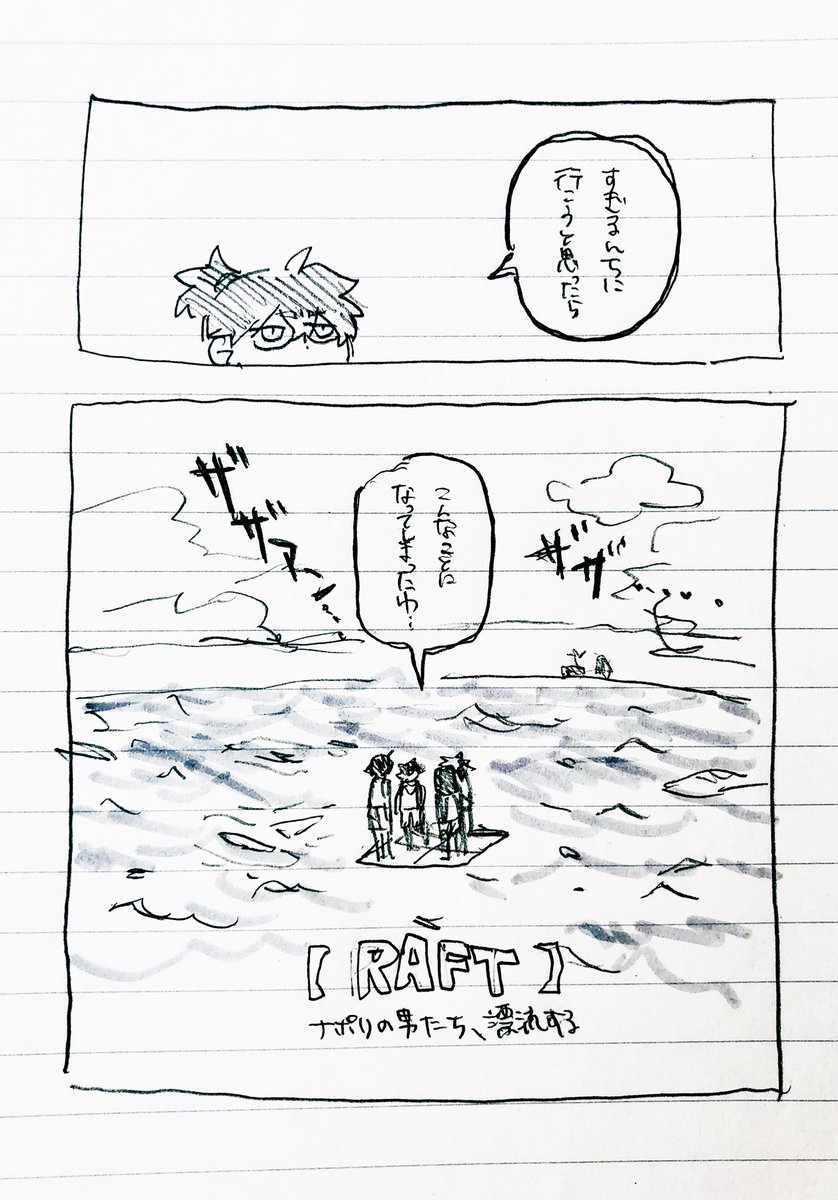 すぎるんちに
行こうと思ったら
こんなことに
なってしまったわ…
ザザァー…
ザザ…
【RAFT】
ナポリの男たち、漂流する